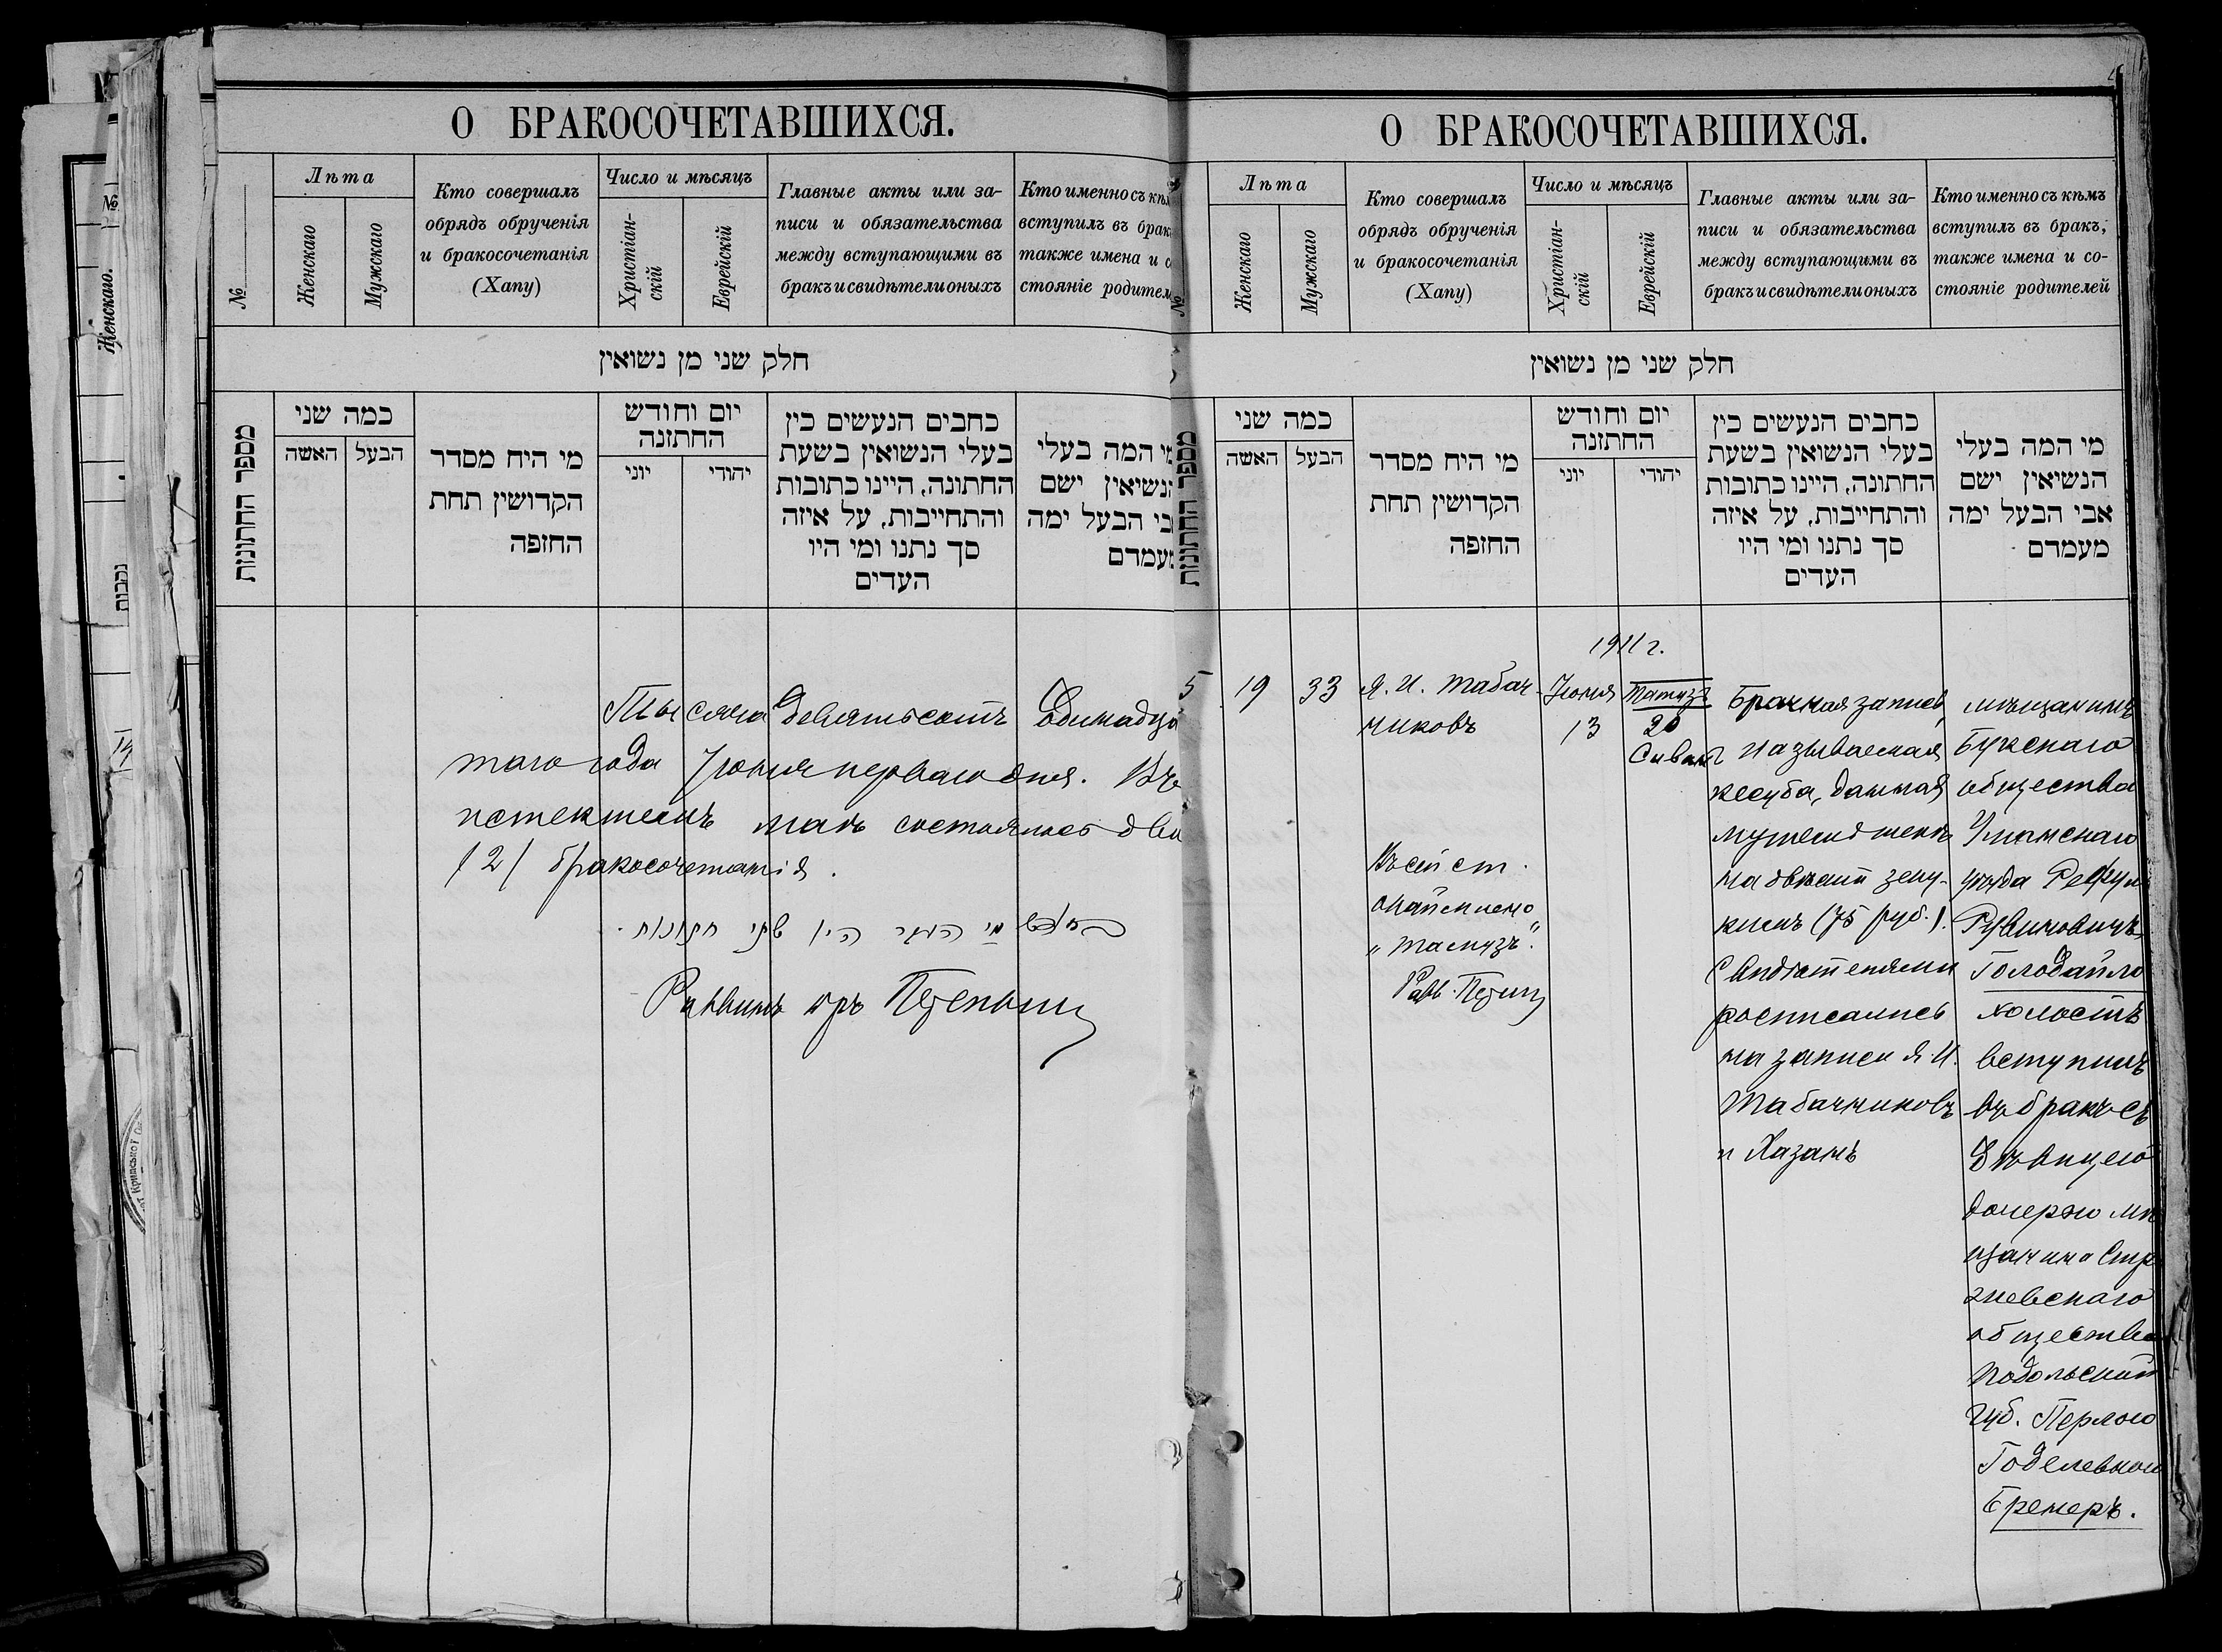 О БРАКОСОЧЕТАВШИХСЯ.
№
Лѣта
Женскаго
Мужскаго
Кто совершалъ
обрядъ обрученія
и бракосочетанія
(Хапу)
Число и мѣсяцъ
Христіан-
скій
Еврейскій
Главные акты или за-
писи и обязательства
между вступающими въ
бракъ и свидѣтели оныхъ
Кто именно съ кѣм
вступилъ въ брак
также имена и с
стояніе родител
חלק שני מן נשואין
מספר החתונות
כמה שני
האשה
הבעל
מי היח מסדר
הקדושין תחת
החופה
יום וחודש
החתונה
יוני
יהודי
כחבים הנעשים כין
בעלי הנשואין בשעת
החתונה, היינו כתובות
והתחייבות, על איזה
סך נתנו ומי היו
העדים
מי המה בעלי
הנשיאין ישם
אבי הבעל ימה
מעמדם
Тысяча девятьсотъ одинадца
таго года Іюня перваго дня. Въ
истекшемъ маѣ состоялось два
/2/ бракосочетанія.
בחדש מי העבר היו שתי חתונות.
Раввинъ
О БРАКОСОЧЕТАВШИХСЯ.
№
Лѣта
Женскаго
Мужскаго
Кто совершалъ
обрядъ обрученія
и бракосочетанія
(Хапу)
Число и мѣсяцъ
Христіан-
скій
Еврейскій
Главные акты или за-
писи и обязательства
между вступающими въ
бракъ и свидѣтели оныхъ
Кто именно съ кѣмъ
вступилъ въ бракъ,
также имена и со-
стояніе родителей
חלק שני מן נשואין
מספר החתונות
כמה שני
האשה
הבעל
מי היח מסדר
הקדושין תחת
החופה
יום וחודש
החתונה
יוני
יהודי
כחבים הנעשים כין
בעלי הנשואין בשעת
החתונה, היינו כתובות
והתחייבות, על איזה
סך נתנו ומי היו
העדים
מי המה בעלי
הנשיאין ישם
אבי הבעל ימה
מעמדם
1911 г.
5
19
33
Я. И. Табач-
никовъ
Іюня
13
Тамузъ
20
Сиванъ
Въ сей ст.
"Тамузъ".
Равв.
Брачная запись,
называемая
кесуба, данная
мужемъ женѣ
на двѣсти зеку-
кимъ (75 руб.).
Свидѣтелями
росписались
на записи Я. И.
Табачниковъ
и Хазанъ
мѣщанинъ
Букскаго
общества
Уманскаго
уѣзда
Рувиновичъ
Голодайло
холостъ
вступилъ
въ бракъ съ
дѣвицею
дочерью мѣ
щанина
общества
Подольской
губ. Перлою
Годелевною
Бренеръ.